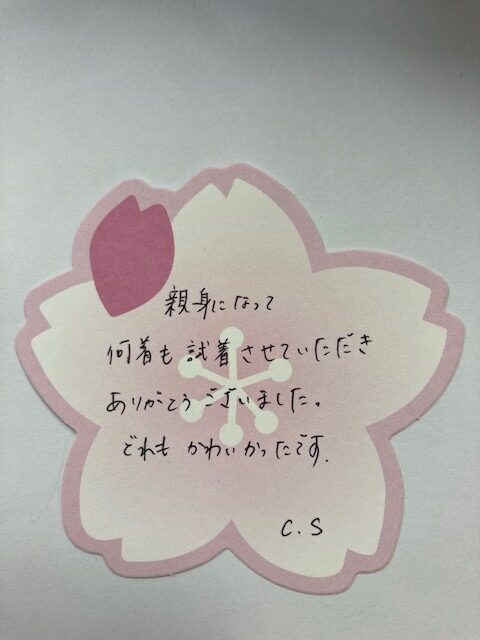 親身になって
何着も試着させていただき
ありがとうございました。
どれもかわいかったです.
C.S